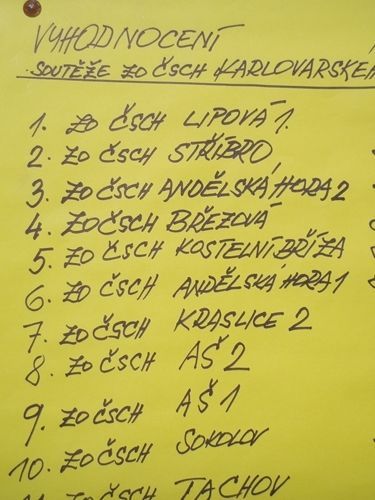 VYHODNOCENÍ
SOUTĚŽE ZO ČSCH KARLOVARSKÉH
1. ZO ČSCH LIPOVÁ 1.
2. ZO ČSCH STŘÍBRO
3. ZO ČSCH ANDĚLSKÁ HORA 2
4. ZO ČSCH BŘEZOVÁ
5. ZO ČSCH KOSTELNÍ BŘÍZA
6. ZO ČSCH ANDĚLSKÁ HORA 1
7. ZO ČSCH KRASLICE 2
8. ZO ČSCH AŠ 2
9. ZO ČSCH AŠ 1
10. ZO ČSCH SOKOLOV
11. ZO ČSCH TACHOV